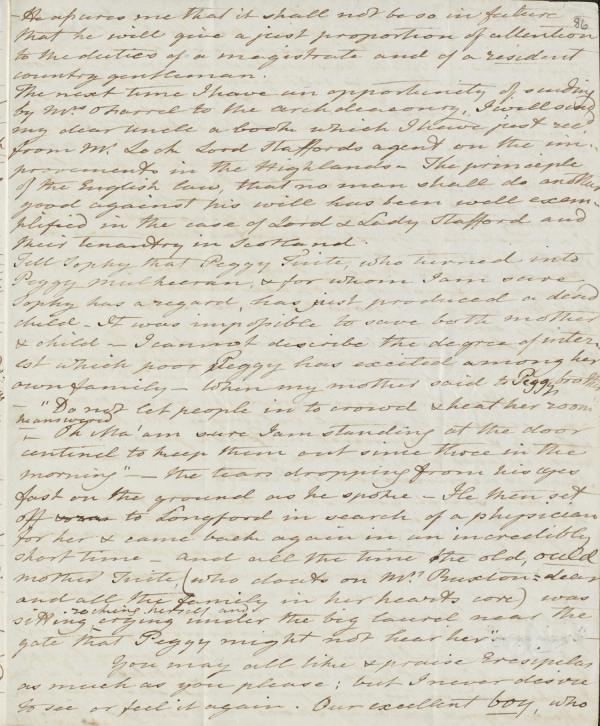 He assures me that it shall not be so in future
86
that he will give a just proportion of attention
to the duties of a magistrate and of a resident
country gentleman.
The next time I have an opportunity of sending
by Mrs O'Farrel to the archdeaconry, I will send
my dear Uncle a book which I have just recd.
from Mr. Loch Lord Staffords agent on the im-
provements in the Highlands - The principle
of the English law, that no man shall do another
good against his will has been well exem-
plified in the case of Lord & Lady Stafford and
their tenantry in Scotland.
Tell Sophy that Peggy Tuite, who turned into
Peggy Mulheeran, & for whom I am sure
Sophy has a regard, has just produced a dead
child - It was impossible to save both mother
& child - I cannot describe the degree of inter-
est which poor Peggy has excited among her
own family - When my mother said to Peggy's brother
- "Do not let people in to crowd & heat her room
he answered
- "Oh Ma'am sure I am standing at the door
centinel to keep them out since three in the
morning" - the tears dropping from his eyes
fast on the ground as he spoke - He then set
off to Longford in search of a physician
for her & came back again in an incredibly
short time - and all the time the old, ould
mother Tuite, (who doats on Mrs Ruxton - dear
and all the family in her hearts core) was
rocking herself and
sitting crying under the big laurel near the
gate that Peggy might not hear her" -
You may all like & praise Eresipelas
as much as you please; but I never desire
to see or feel it again. Our excellent boy, who